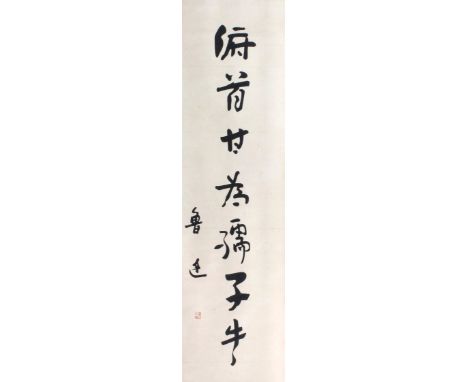 俯首甘為孺子牛
魯迅